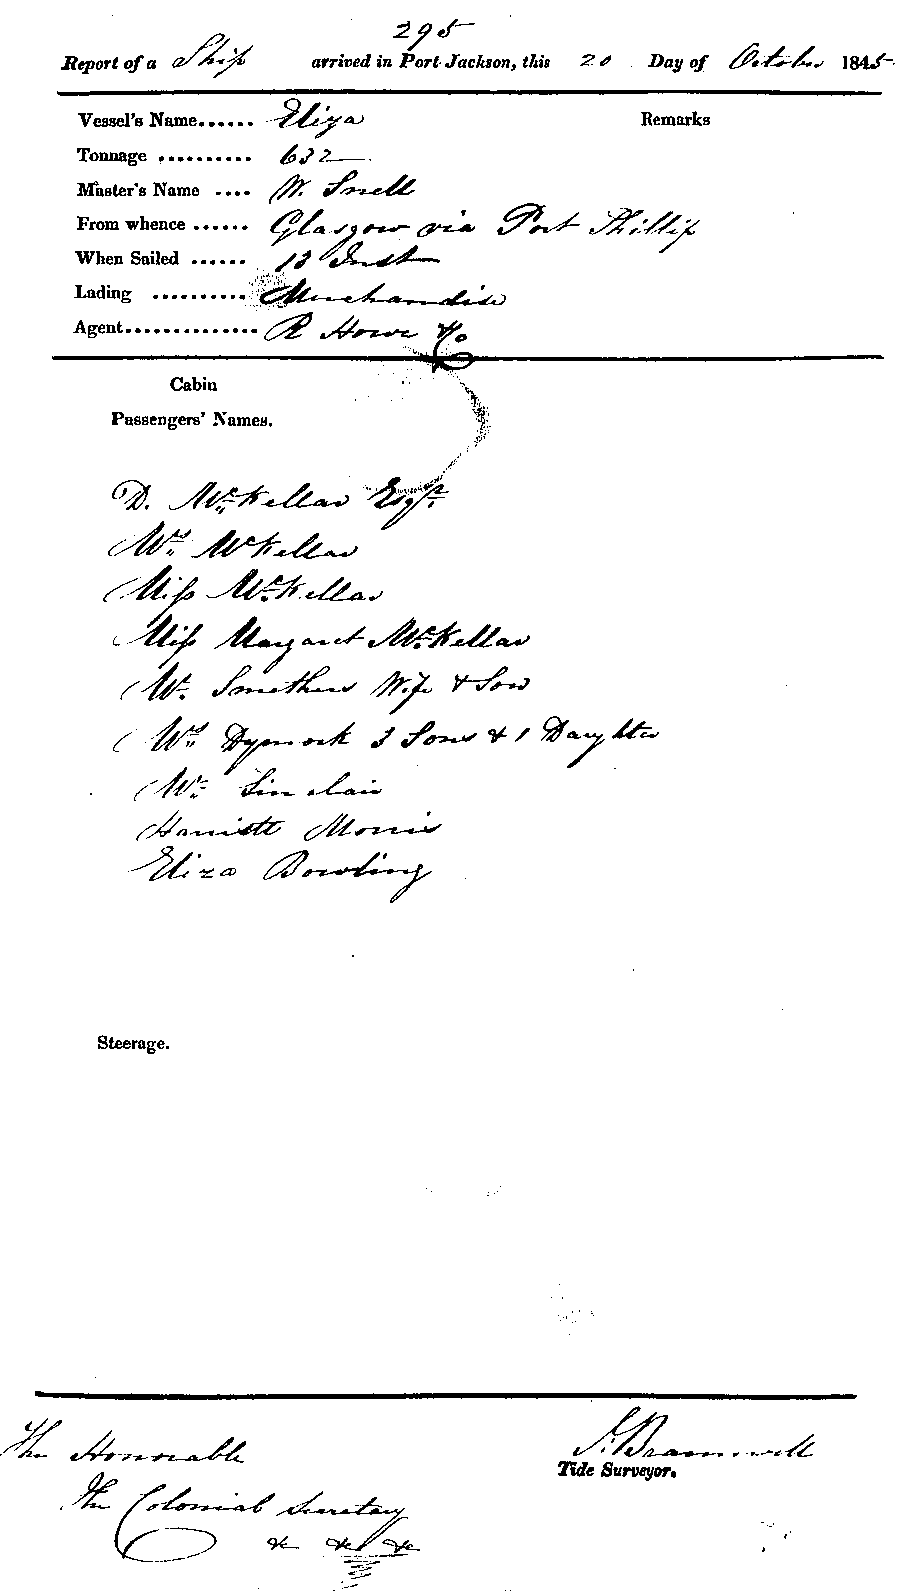 295
Report of a Ship arrived in Port Jackson, this 20 Day of October 1845
Vessel's Name...... Eliza
Remarks
Tonnage .......... 632
Master's Name .... W. Snell
From whence ...... Glasgow via Port Phillip
When Sailed ...... 13 Inst
Lading .......... Merchandise
Agent.............. R Howe & Co
Cabin
Passengers' Names.
D. McKellar Esqr.
Mrs McKellar
Miss McKellar
Miss Margaret McKellar
Mr. Smethers Wife & Son
Mrs Dymock 3 Sons & 1 Daughter
Mr Sinclair
Harriett Morris
Eliza Bowling
Steerage.
The Honorable
The Colonial Secretary
& & &
Bramwell
Tide Surveyor.